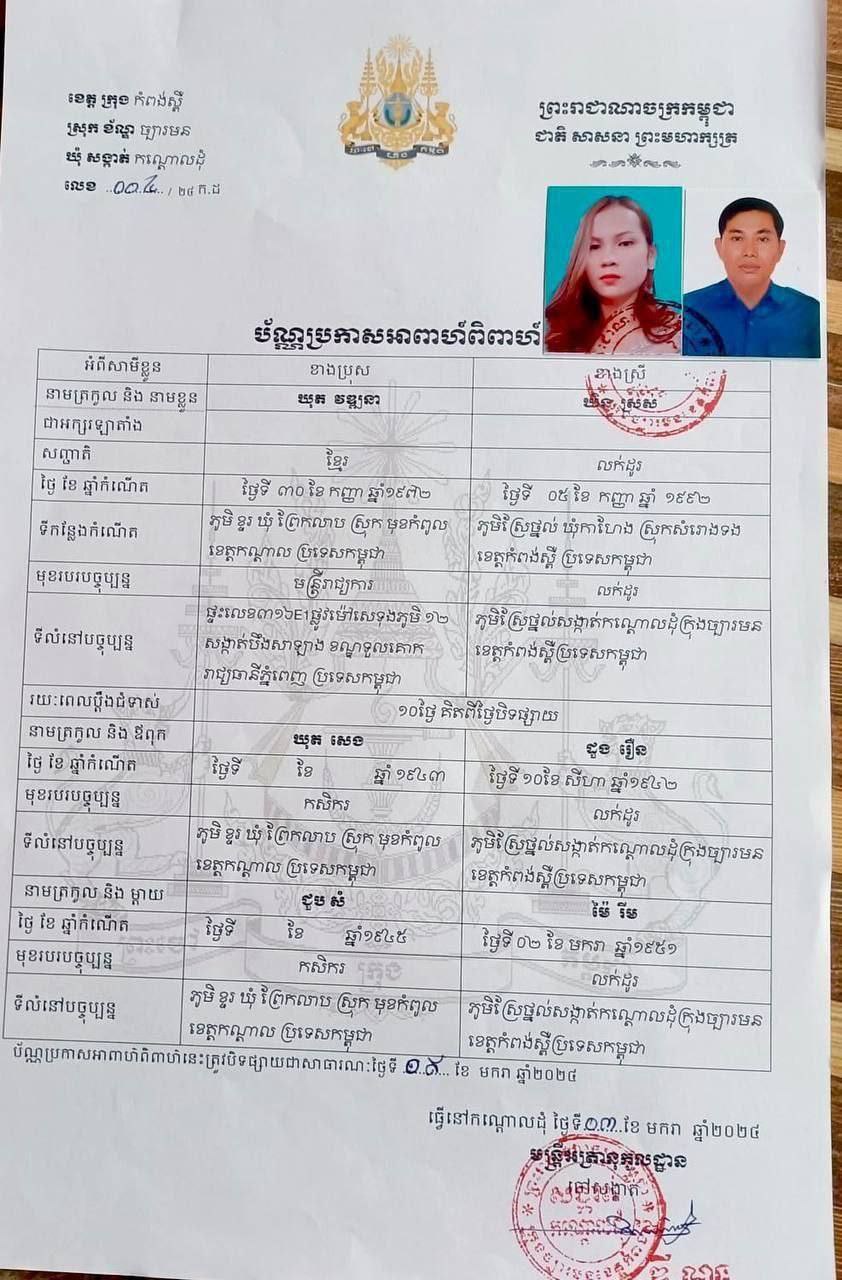 ខេត្ត ក្រុង កំពង់ស្ពឺ
ស្រុក ខ័ណ្ឌ ច្បារមន
ឃុំ សង្កាត់ កណ្តោលដុំ
លេខ ..០០៤.. / ២៤ ក.ដ
ព្រះរាជាណាចក្រកម្ពុជា
ជាតិ សាសនា ព្រះមហាក្សត្រ
ប័ណ្ណប្រកាសអាពាហ៍ពិពាហ៍
អំពីសាមីខ្លួន ខាងប្រុស ខាងស្រី
នាមត្រកូល និង នាមខ្លួន ឃុត វឌ្ឍនា ស្រស់
ជាអក្សរឡាតាំង
សញ្ជាតិ ខ្មែរ លក់ដូរ
ថ្ងៃ ខែ ឆ្នាំកំណើត ថ្ងៃទី ៣០ ខែ កញ្ញា ឆ្នាំ១៩៧២ ថ្ងៃទី ០៥ ខែ កញ្ញា ឆ្នាំ ១៩៩២
ទីកន្លែងកំណើត ភូមិ ខ្ទរ ឃុំ ព្រែកលាប ស្រុក មុខកំពូល ភូមិស្រែថ្នល់ ឃុំកាហែង ស្រុកសំរោងទង
ខេត្តកណ្តាល ប្រទេសកម្ពុជា ខេត្តកំពង់ស្ពឺ ប្រទេសកម្ពុជា
មុខរបរបច្ចុប្បន្ន មន្ត្រីរាជ្យការ លក់ដូរ
ផ្ទះលេខ៣១៦E1ផ្លូវម៉ៅសេទុងភូមិ ១២ ភូមិស្រែថ្នល់សង្កាត់កណ្តោលដុំក្រុងច្បារមន
ទីលំនៅបច្ចុប្បន្ន សង្កាត់បឹងសាឡាង ខណ្ឌទួលគោក ខេត្តកំពង់ស្ពឺប្រទេសកម្ពុជា
រាជ្យធានីភ្នំពេញ ប្រទេសកម្ពុជា
រយៈពេលប្តឹងជំទាស់ ១០ថ្ងៃ គិតពីថ្ងៃបិទផ្សាយ
នាមត្រកូល និង ឪពុក ឃុត សេង ដួង រឿន
ថ្ងៃ ខែ ឆ្នាំកំណើត ថ្ងៃទី ខែ ឆ្នាំ ១៩៤៣ ថ្ងៃទី ១០ខែ សីហា ឆ្នាំ១៩៤២
មុខរបរបច្ចុប្បន្ន កសិករ លក់ដូរ
ទីលំនៅបច្ចុប្បន្ន ភូមិ ខ្ទរ ឃុំ ព្រែកលាប ស្រុក មុខកំពូល ភូមិស្រែថ្នល់សង្កាត់កណ្តោលដុំក្រុងច្បារមន
ខេត្តកណ្តាល ប្រទេសកម្ពុជា ខេត្តកំពង់ស្ពឺប្រទេសកម្ពុជា
នាមត្រកូល និង ម្តាយ ជួប សំ ម៉ៃ រីម
ថ្ងៃ ខែ ឆ្នាំកំណើត ថ្ងៃទី ខែ ឆ្នាំ១៩៤៥ ថ្ងៃទី ០២ ខែ មករា ឆ្នាំ១៩៥១
មុខរបរបច្ចុប្បន្ន កសិករ លក់ដូរ
ទីលំនៅបច្ចុប្បន្ន ភូមិ ខ្ទរ ឃុំ ព្រែកលាប ស្រុក មុខកំពូល ភូមិស្រែថ្នល់សង្កាត់កណ្តោលដុំក្រុងច្បារមន
ខេត្តកណ្តាល ប្រទេសកម្ពុជា ខេត្តកំពង់ស្ពឺប្រទេសកម្ពុជា
ប័ណ្ណប្រកាសអាពាហ៍ពិពាហ៍នេះត្រូវបិទផ្សាយជាសាធារណៈថ្ងៃទី ..១៩... ខែ មករា ឆ្នាំ២០២៤
ធ្វើនៅកណ្តោលដុំ ថ្ងៃទី.១៣..ខែ មករា ឆ្នាំ២០២៤
មន្ត្រីអត្រានុកូលដ្ឋាន
ចៅសង្កាត់